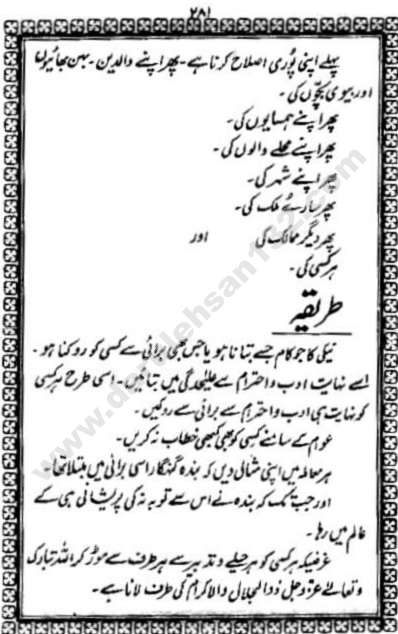 ۲۸۱
پہلے اپنی پُوری اصلاح کرنا ہے ۔ پھر اپنے والدین ۔ بہن بھائیوں
اور بیوی بچّوں کی ۔
پھر اپنے ہمسایوں کی ۔
پھر اپنے محلے والوں کی ۔
پھر اپنے شہر کی ۔
پھر سارے ملک کی ۔
پھر دیگر ممالک کی اور
ہر کسی کی ۔
طریقہ
نیکی کا جو کام جسے بتانا ہو یا جس بھی برائی سے کسی کو روکنا ہو ۔
اسے نہایت ادب و احترام سے علیٰحدگی میں بتائیں ۔ اسی طرح ہر کسی
کو نہایت ہی ادب و احترام سے برائی سے روکیں ۔
عوام کے سامنے کسی کو بھی کبھی خطاب نہ کریں ۔
ہر معاملہ میں اپنی مثال دیں کہ بندہ گنہگار اسی برائی میں مبتلا تھا ۔
اور جب تک کہ بندہ نے اس سے توبہ نہ کی پریشانی ہی کے
عالم میں رہا ۔
غرضیکہ ہر کسی کو ہر حیلے و تدبیر سے ہر طرف سے موڑ کر اللہ تبارک
و تعالےٰ عزّوجل ذوالجلال والاکرام کی طرف لانا ہے ۔
www.darulehsan132.com